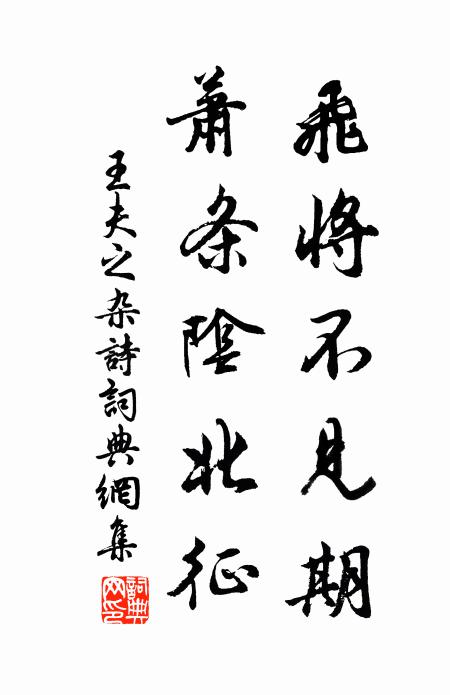 飛將不見期
萧条陰北征
王夫之杂詩詞典網集
詞典網印